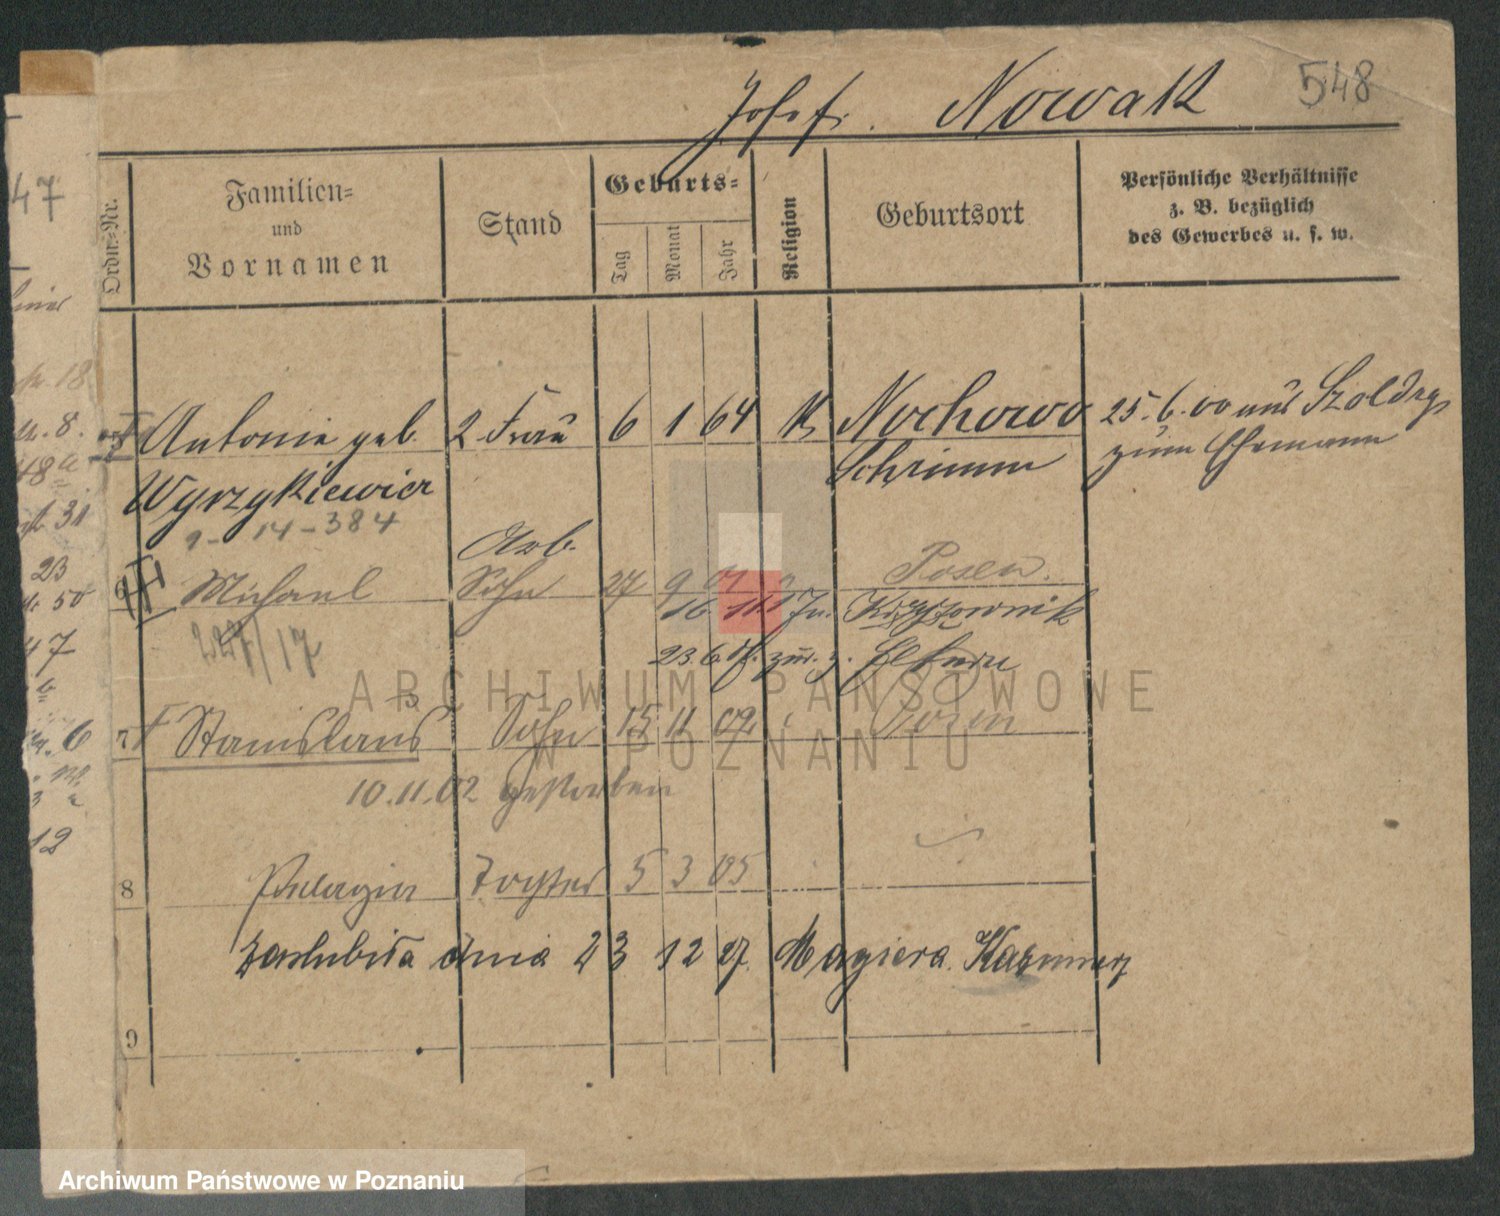 Josef. Nowak 548
Ordn.-Nr.
Familien-
und
Vornamen
Stand
Geburts-
Tag
Monat
Jahr
Religion
Geburtsort
Persönliche Verhältnisse
z. B. bezüglich
des Gewerbes u. s. w.
Antonie geb. 2 Frau 6 1 64 K Nochowo 25.6.00 aus Szoldry
Wyrzykiewicz Schrimm zum Ehemann
9-14-384
Arb.
6 Michael Sohn 27 9 01 Posen.
16 Krzyzownik
227/17
23.6. Eltern
7 Stanislaus Sohn 15 11 02 Posen
10.11.02 gestorben
8 Pelagia Tochter 5 3 05
zaslubiła dnia 23 12 27. Magiera Kazimierz
9
47
18
8.
48a
31
23
50
47
6
12
ARCHIWUM PAŃSTWOWE
W POZNANIU
Archiwum Państwowe w Poznaniu